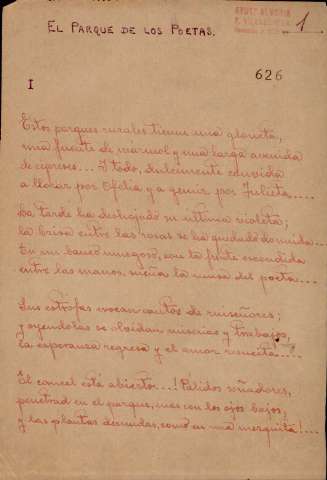 EL PARQUE DE LOS POETAS.
1
626
I
Estos parques rurales tienen una glorieta,
una fuente de mármol y una larga avenida
de cipreses... Y todo, dulcemente convida
a llorar por Ofelia y a gemir por Julieta....
La tarde ha deshojado su última violeta;
la brisa entre las rosas se ha quedado dormida...
En un banco musgoso, con la frente escondida
entre las manos, sueña la musa del poeta...
Sus estrofas evocan cantos de ruiseñores;
y oyéndolas se olvidan miserias y trabajos,
la esperanza regresa y el amor resucita....
El cancel está abierto...! Pálidos soñadores,
penetrad en el parque, mas con los ojos bajos,
y las plantas desnudas, como en una mezquita!...